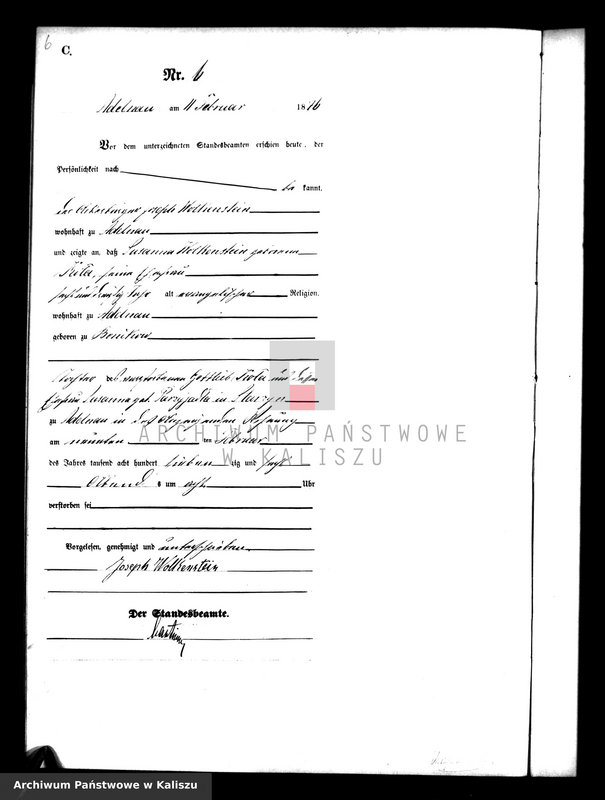 6
C.
Nr. 6
Adelnau am 11 Februar 1876
Vor dem unterzeichneten Standesbeamten erschien heute, der
Persönlichkeit nach
be kannt,
der Ackerbürger Joseph Wolkenstein
wohnhaft zu Adelnau
und zeigte an, daß Susanna Wolkenstein geborene
seine Ehefrau
sechs und dreißig Jahr alt evangelischer Religion,
wohnhaft zu Adelnau
geboren zu Bonikow
Tochter des verstorbenen Gottlieb und dessen
Ehefrau Susanna geb. in
zu Adelnau in des Anzeigenden Wohnung
am neunten ten Februar
des Jahres tausend acht hundert sieben zig und sechs
Abend s um acht Uhr
verstorben sei
Vorgelesen, genehmigt und unterschrieben
Joseph Wolkenstein
Der Standesbeamte.
ARCHIWUM PAŃSTWOWE
W KALISZU
Archiwum Państwowe w Kaliszu